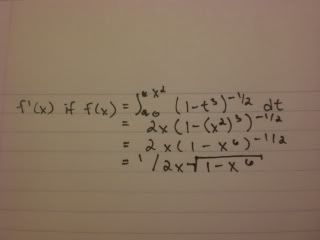 f'(x) if f(x) = ∫₀^x² (1-t³)^-1/2 dt
= 2x (1-(x²)³)^-1/2
= 2x (1-x⁶)^-1/2
= 1/2x√1-x⁶